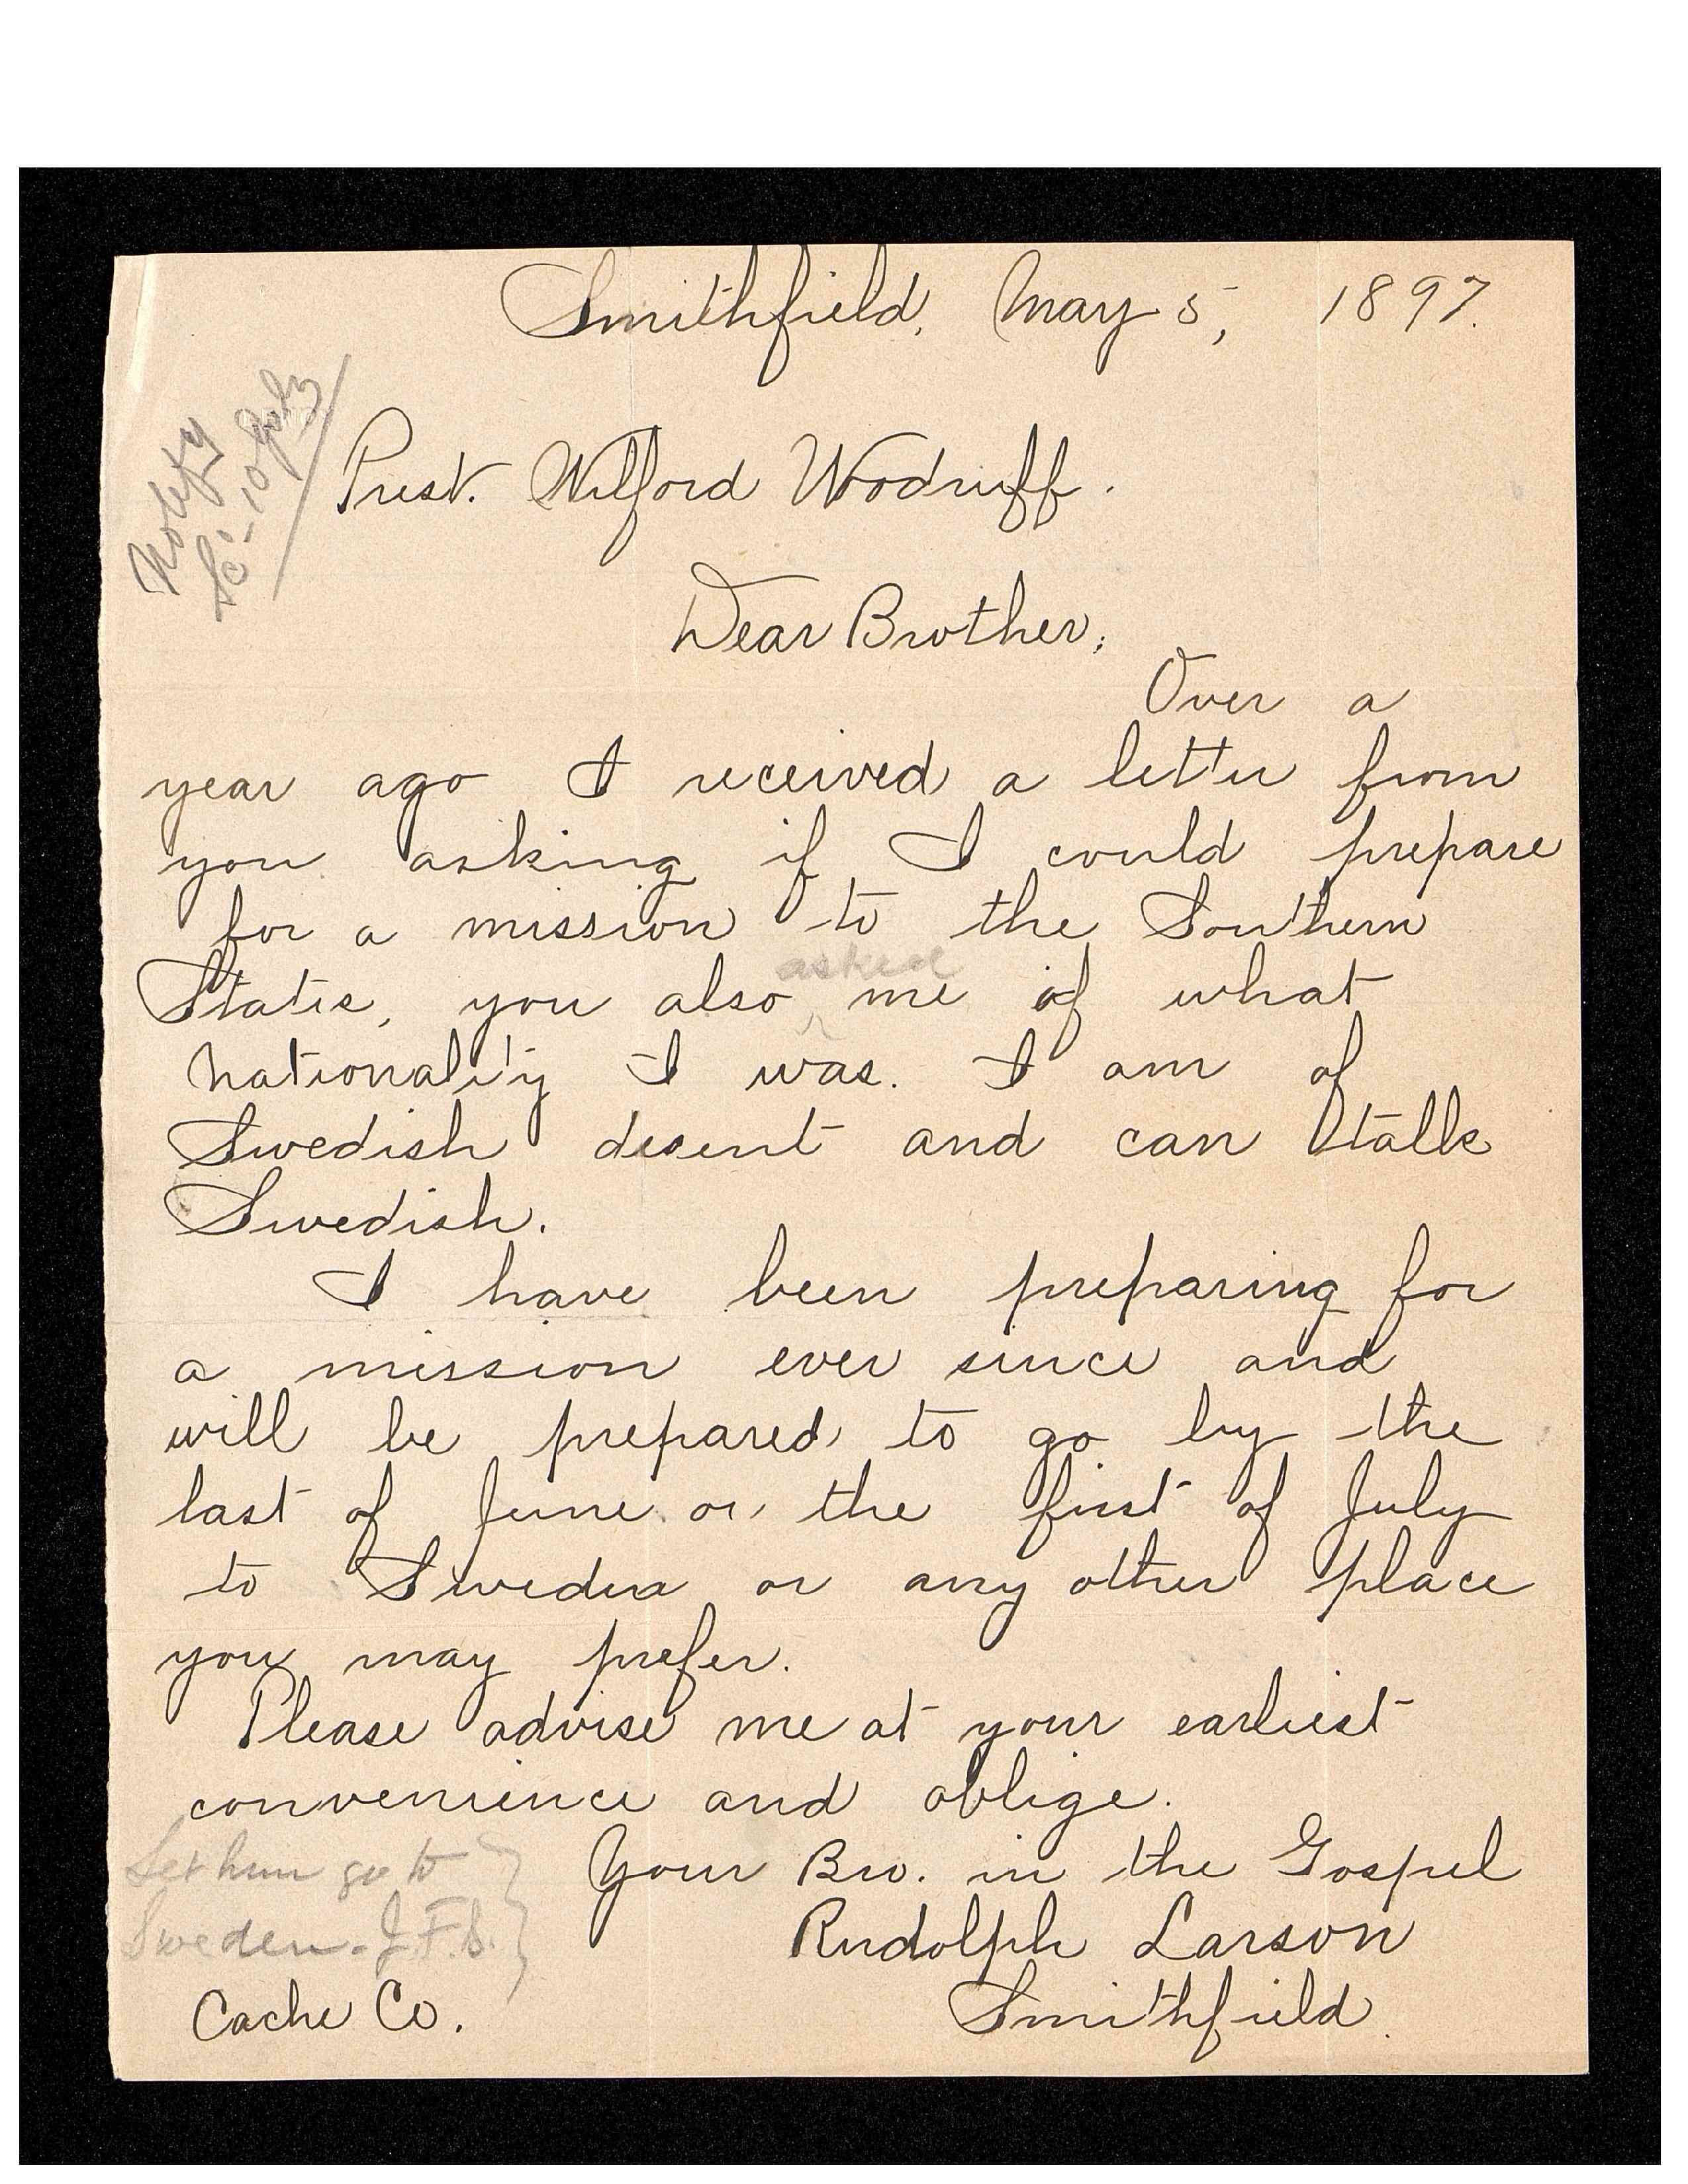 Smithfield, May 5, 1897.
Notify
Sc: 10 July
Prest. Wilford Woodruff.
Dear Brother;
Over a
year ago I received a letter from
you asking if I could prepare
for a mission to the Southern
asked
States, you also me of what
nationality I was. I am of
Swedish desent and can talk
Swedish.
I have been preparing for
a mission ever since and
will be prepared to go by the
last of June or the first of July
to Sweden or any other place
you may prefer.
Please advise me at your earliest
convenience and oblige.
Let him go to
Sweden. J.F.S.
Your Bro. in the Gospel
Rudolph Larson
Cache Co. Smithfield.